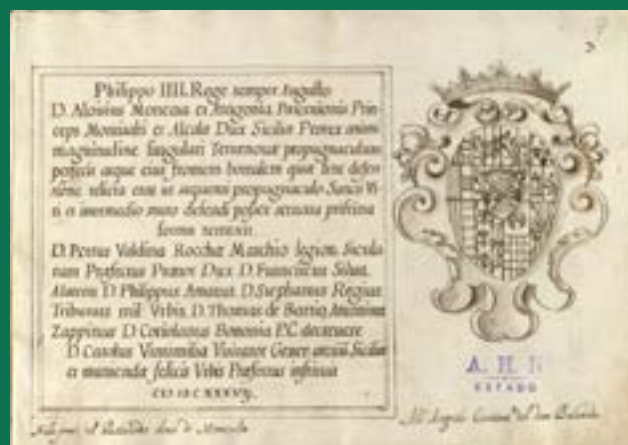 Philippo IIII. Rege semper Augusto
D. Aloisius Moncata et Aragonia Paternionis Prin-
ceps Montialti et Alcalà Dux Siciliæ Prorex animi
magnitudine singulari Terrænovæ propugnaculum
perfecit atque eius frontem borealem quæ sine defen
sione relicta erat ut sequenti propugnaculo Sancti Vi-
ti et intermedio muro defendi posset servata pristina
forma
D. Petrus Valdina Rocchæ Marchio legion. Sicula-
rum Præfectus Prætor Dux D. Franciscus
D. Philippus Amatus D. Stephanus Regius
Tribunus mil. Urbis D. Thomas de Barrio Antoninus
Zappinus D. Coriolanus Bononia P.C. decrevere
D. Carolus Vintimilia Visitator Gener. arcium Siciliæ
et muniendæ felicis Urbis Præfectus institit
CIƆ IƆC XXXVIJ
A. H. N
ESTADO